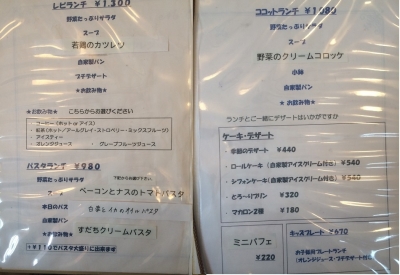 レピランチ ¥1,300
野菜たっぷりサラダ
スープ
若鶏のカツレツ
自家製パン
プチデザート
★お飲み物★
★お飲み物★ こちらからお選びください
・コーヒー(ホット or アイス)
・紅茶(ホット/アールグレイ・ストロベリー・ミックスフルーツ)
・アイスティー
・オレンジジュース ・グレープフルーツジュース
パスタランチ ¥980
野菜たっぷりサラダ
スープ
ベーコンとナスのトマトパスタ
本日のパスタ
自家製パン
すだちクリームパスタ
★お飲み物★
+¥110でパスタ大盛りに出来ます
ココットランチ ¥1080
野菜たっぷりサラダ
スープ
野菜のクリームコロッケ
小鉢
自家製パン
★お飲み物★
ランチとご一緒にデザートはいかがですか
ケーキ・デザート
・季節のデザート ¥440
・ロールケーキ(自家製アイスクリーム付き) ¥540
・シフォンケーキ(自家製アイスクリーム付き) ¥540
・とろ～りプリン ¥320
・マカロン2種 ¥180
ミニパフェ
¥220
キッズプレート ¥670
お子様用プレートランチ
(オレンジジュース・プチデザート付き)